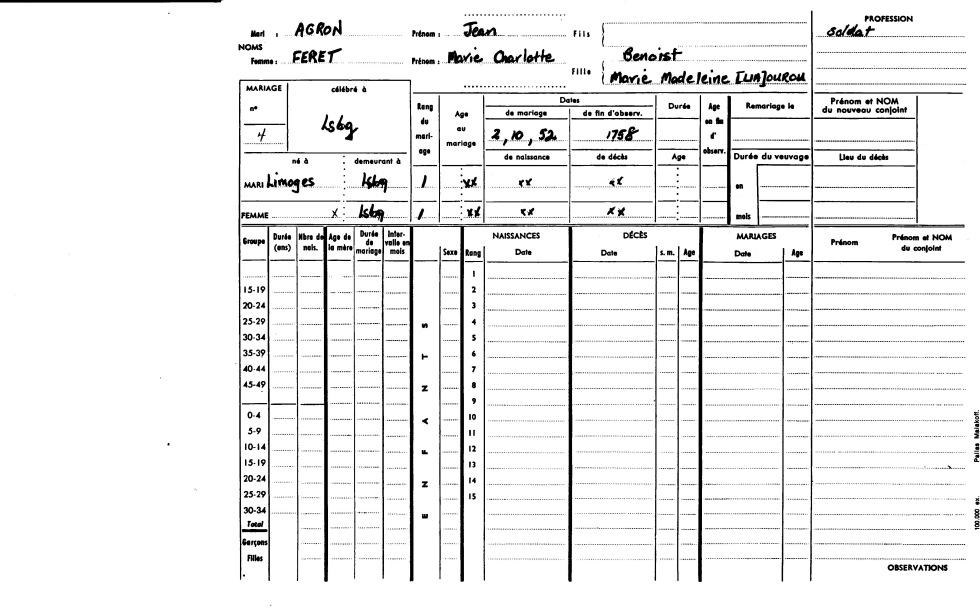 PROFESSION
Mari : AGRON Prénom : Jean Fils soldat
NOMS
Femme : FERET Prénom : Marie Charlotte Fille Benoist
Marie Madeleine [LIA]OUROU
MARIAGE célébré à
n° 4 Lsbg
Rang du mariage
Age au mariage
Dates
de mariage de fin d'observ.
2, 10, 52 1758
de naissance de décès
Durée Age
Age en fin d'observ.
Remariage le
Durée du veuvage
en
mois
Prénom et NOM du nouveau conjoint
Lieu du décès
né à demeurant à
MARI Limoges Lsbg 1 xx xx xx
FEMME x Lsbg 1 xx xx xx
Groupe Durée (ans) Nbre de nais. Age de la mère Durée de mariage Inter-valle en mois Sexe Rang NAISSANCES Date DÉCÈS Date s. m. Age MARIAGES Date Age Prénom Prénom et NOM du conjoint
ENFANTS
1
15-19 2
20-24 3
25-29 4
30-34 5
35-39 6
40-44 7
45-49 8
9
0-4 10
5-9 11
10-14 12
15-19 13
20-24 14
25-29 15
30-34
Total
Garçons
Filles
OBSERVATIONS
100.000 ex. Pallas Malakoff.